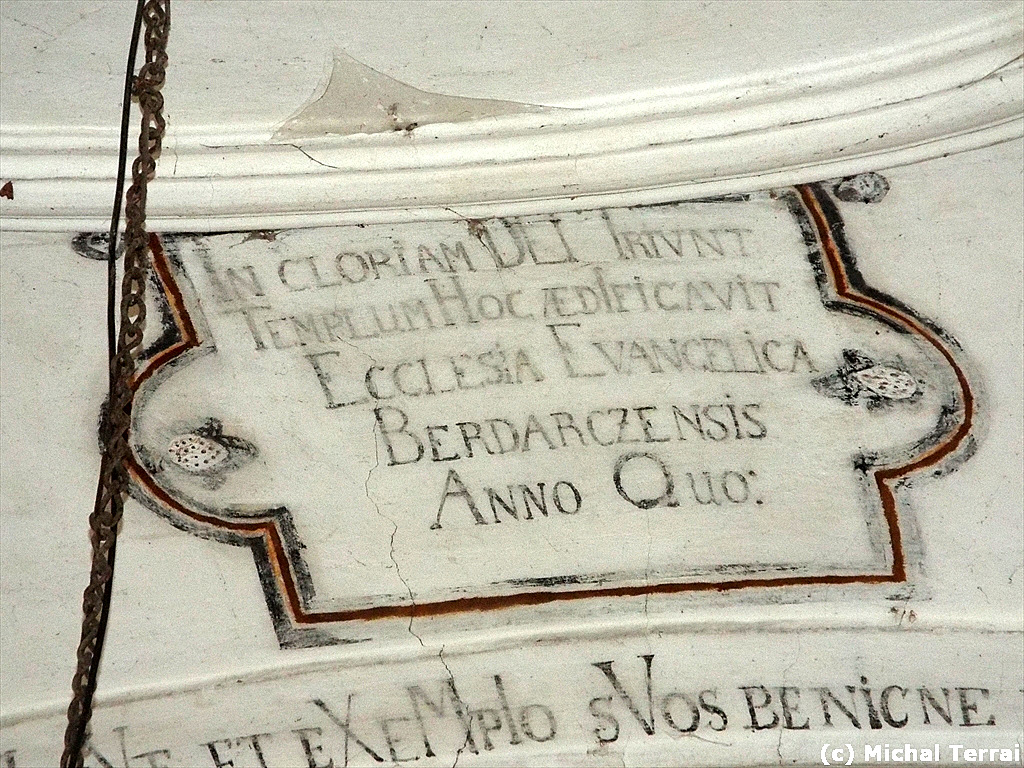 IN CLORIAM DEI TRIVNT
TEMPLUM HOC ÆDIFICAVIT
ECCLESIA EVANGELICA
BERDARCZENSIS
ANNO QUO:
ET EXEMPLO SVOS BENIGNE
(c) Michal Terrai